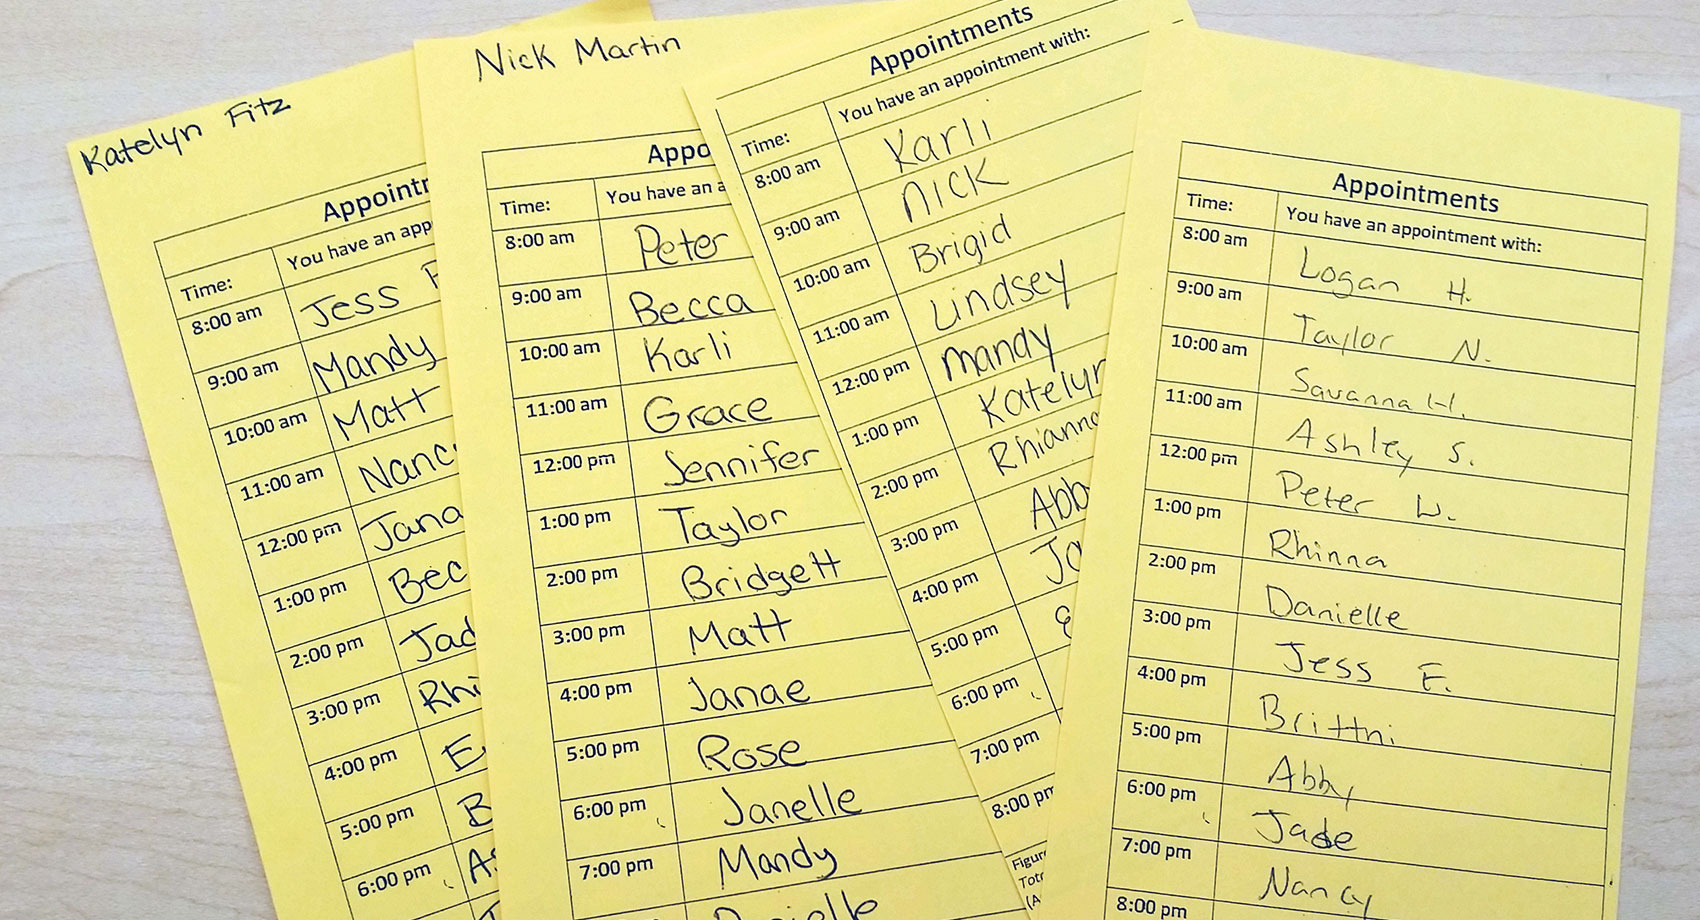 Katelyn Fitz
Appointm
Time: You have an app
8:00 am Jess F
9:00 am Mandy
10:00 am Matt
11:00 am Nanc
12:00 pm Jana
1:00 pm Bec
2:00 pm Jad
3:00 pm Rhi
4:00 pm E
5:00 pm B
6:00 pm As
Nick Martin
Appo
Time: You have an a
8:00 am Peter
9:00 am Becca
10:00 am Karli
11:00 am Grace
12:00 pm Jennifer
1:00 pm Taylor
2:00 pm Bridgett
3:00 pm Matt
4:00 pm Janae
5:00 pm Rose
6:00 pm Janelle
7:00 pm Mandy
Danielle
Appointments
Time: You have an appointment with:
8:00 am Karli
9:00 am Nick
10:00 am Brigid
11:00 am Lindsey
12:00 pm Mandy
1:00 pm Katelyn
2:00 pm Rhianna
3:00 pm Abb
4:00 pm Ja
5:00 pm
6:00 pm
7:00 pm
8:00 pm
Figur
Tota
(A
Appointments
Time: You have an appointment with:
8:00 am Logan H.
9:00 am Taylor N.
10:00 am Savanna H.
11:00 am Ashley S.
12:00 pm Peter W.
1:00 pm Rhinna
2:00 pm Danielle
3:00 pm Jess F.
4:00 pm Brittni
5:00 pm Abby
6:00 pm Jade
7:00 pm Nancy
8:00 pm